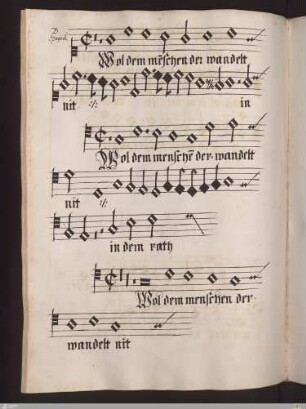 Wol dem mēschen der wandelt
nit :/: in
Wol dem menschē der wandelt
nit :/:
in dem rath
Wol dem menschen der
wandelt nit